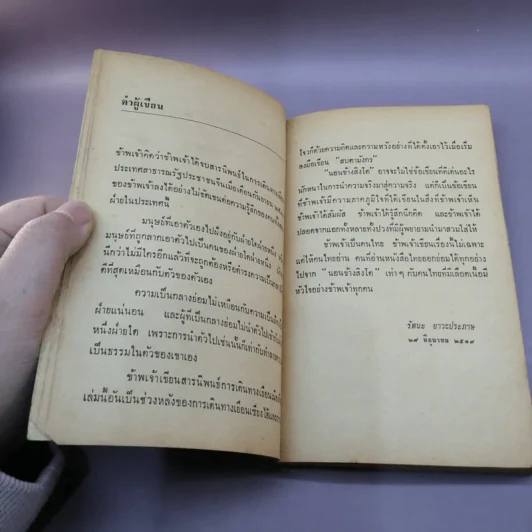 คำผู้เขียน
ข้าพเจ้าคิดว่าข้าพเจ้าได้จบสารนิพนธ์ในการเดินทางเยือน
ประเทศสาธารณรัฐประชาชนจีนเมื่อเดือนกันยายน
ของข้าพเจ้าลงได้อย่างไม่ขัดเขนต่อความรู้สึกของคน
ฝ่ายในประเทศนี้
มนุษย์ที่เอาตัวเองไปผึ่งอยู่กับฝ่ายใดฝ่ายหนึ่ง
มนุษย์ที่ถูกลากเอาตัวไปเป็นคนของฝ่ายใดฝ่ายหนึ่ง
นึกว่าไม่มีใครอีกแล้วที่จะถูกต้องหรือดำรงความเป็น
ดีที่สุดเหมือนกับตัวของตัวเอง
ความเป็นกลางย่อมไม่เหมือนกับความเป็น
ฝ่ายแน่นอน และผู้ที่เป็นกลางย่อมไม่นำตัวไปเข้า
หนึ่งฝ่ายใด เพราะการนำตัวไปเช่นนั้นก็เท่ากับทำลาย
เป็นธรรมในตัวของเขาเอง
ข้าพเจ้าเขียนสารนิพนธ์การเดินทางเยือน
เล่มนี้อันเป็นช่วงหลังของการเดินทางเยือน
ใจวกด้วยความคิดและความหวังอย่างที่ได้ตั้งเอาไว้เมื่อเริ่ม
ลงมือเขียน "สบตามังกร"
"นอนข้างสิงโต" อาจจะไม่ใช่ข้อเขียนที่ดีเด่นอะไร
นักหนาในการนำความจริงมาสู่ความจริง แต่ก็เป็นข้อเขียน
ที่ข้าพเจ้ามีความภาคภูมิใจที่ได้เขียนในสิ่งที่ข้าพเจ้าเห็น
ข้าพเจ้าได้สัมผัส ข้าพเจ้าได้รู้สึกนึกคิด และข้าพเจ้าได้
ปลอดจากแอกทั้งหลายทั้งปวงที่มีผู้พยายามนำมาสวมใส่ให้
ข้าพเจ้าเป็นคนไทย ข้าพเจ้าเขียนเรื่องนี้ไม่เฉพาะ
แต่ให้คนไทยอ่าน คนที่อ่านหนังสือไทยออกย่อมได้ทุกอย่าง
ไปจาก "นอนข้างสิงโต" เท่า ๆ กับคนไทยที่มีเลือดเนื้อมี
หัวใจอย่างข้าพเจ้าทุกคน
รัตนะ ยาวะประภาษ
๒๙ มิถุนายน ๒๕๑๙